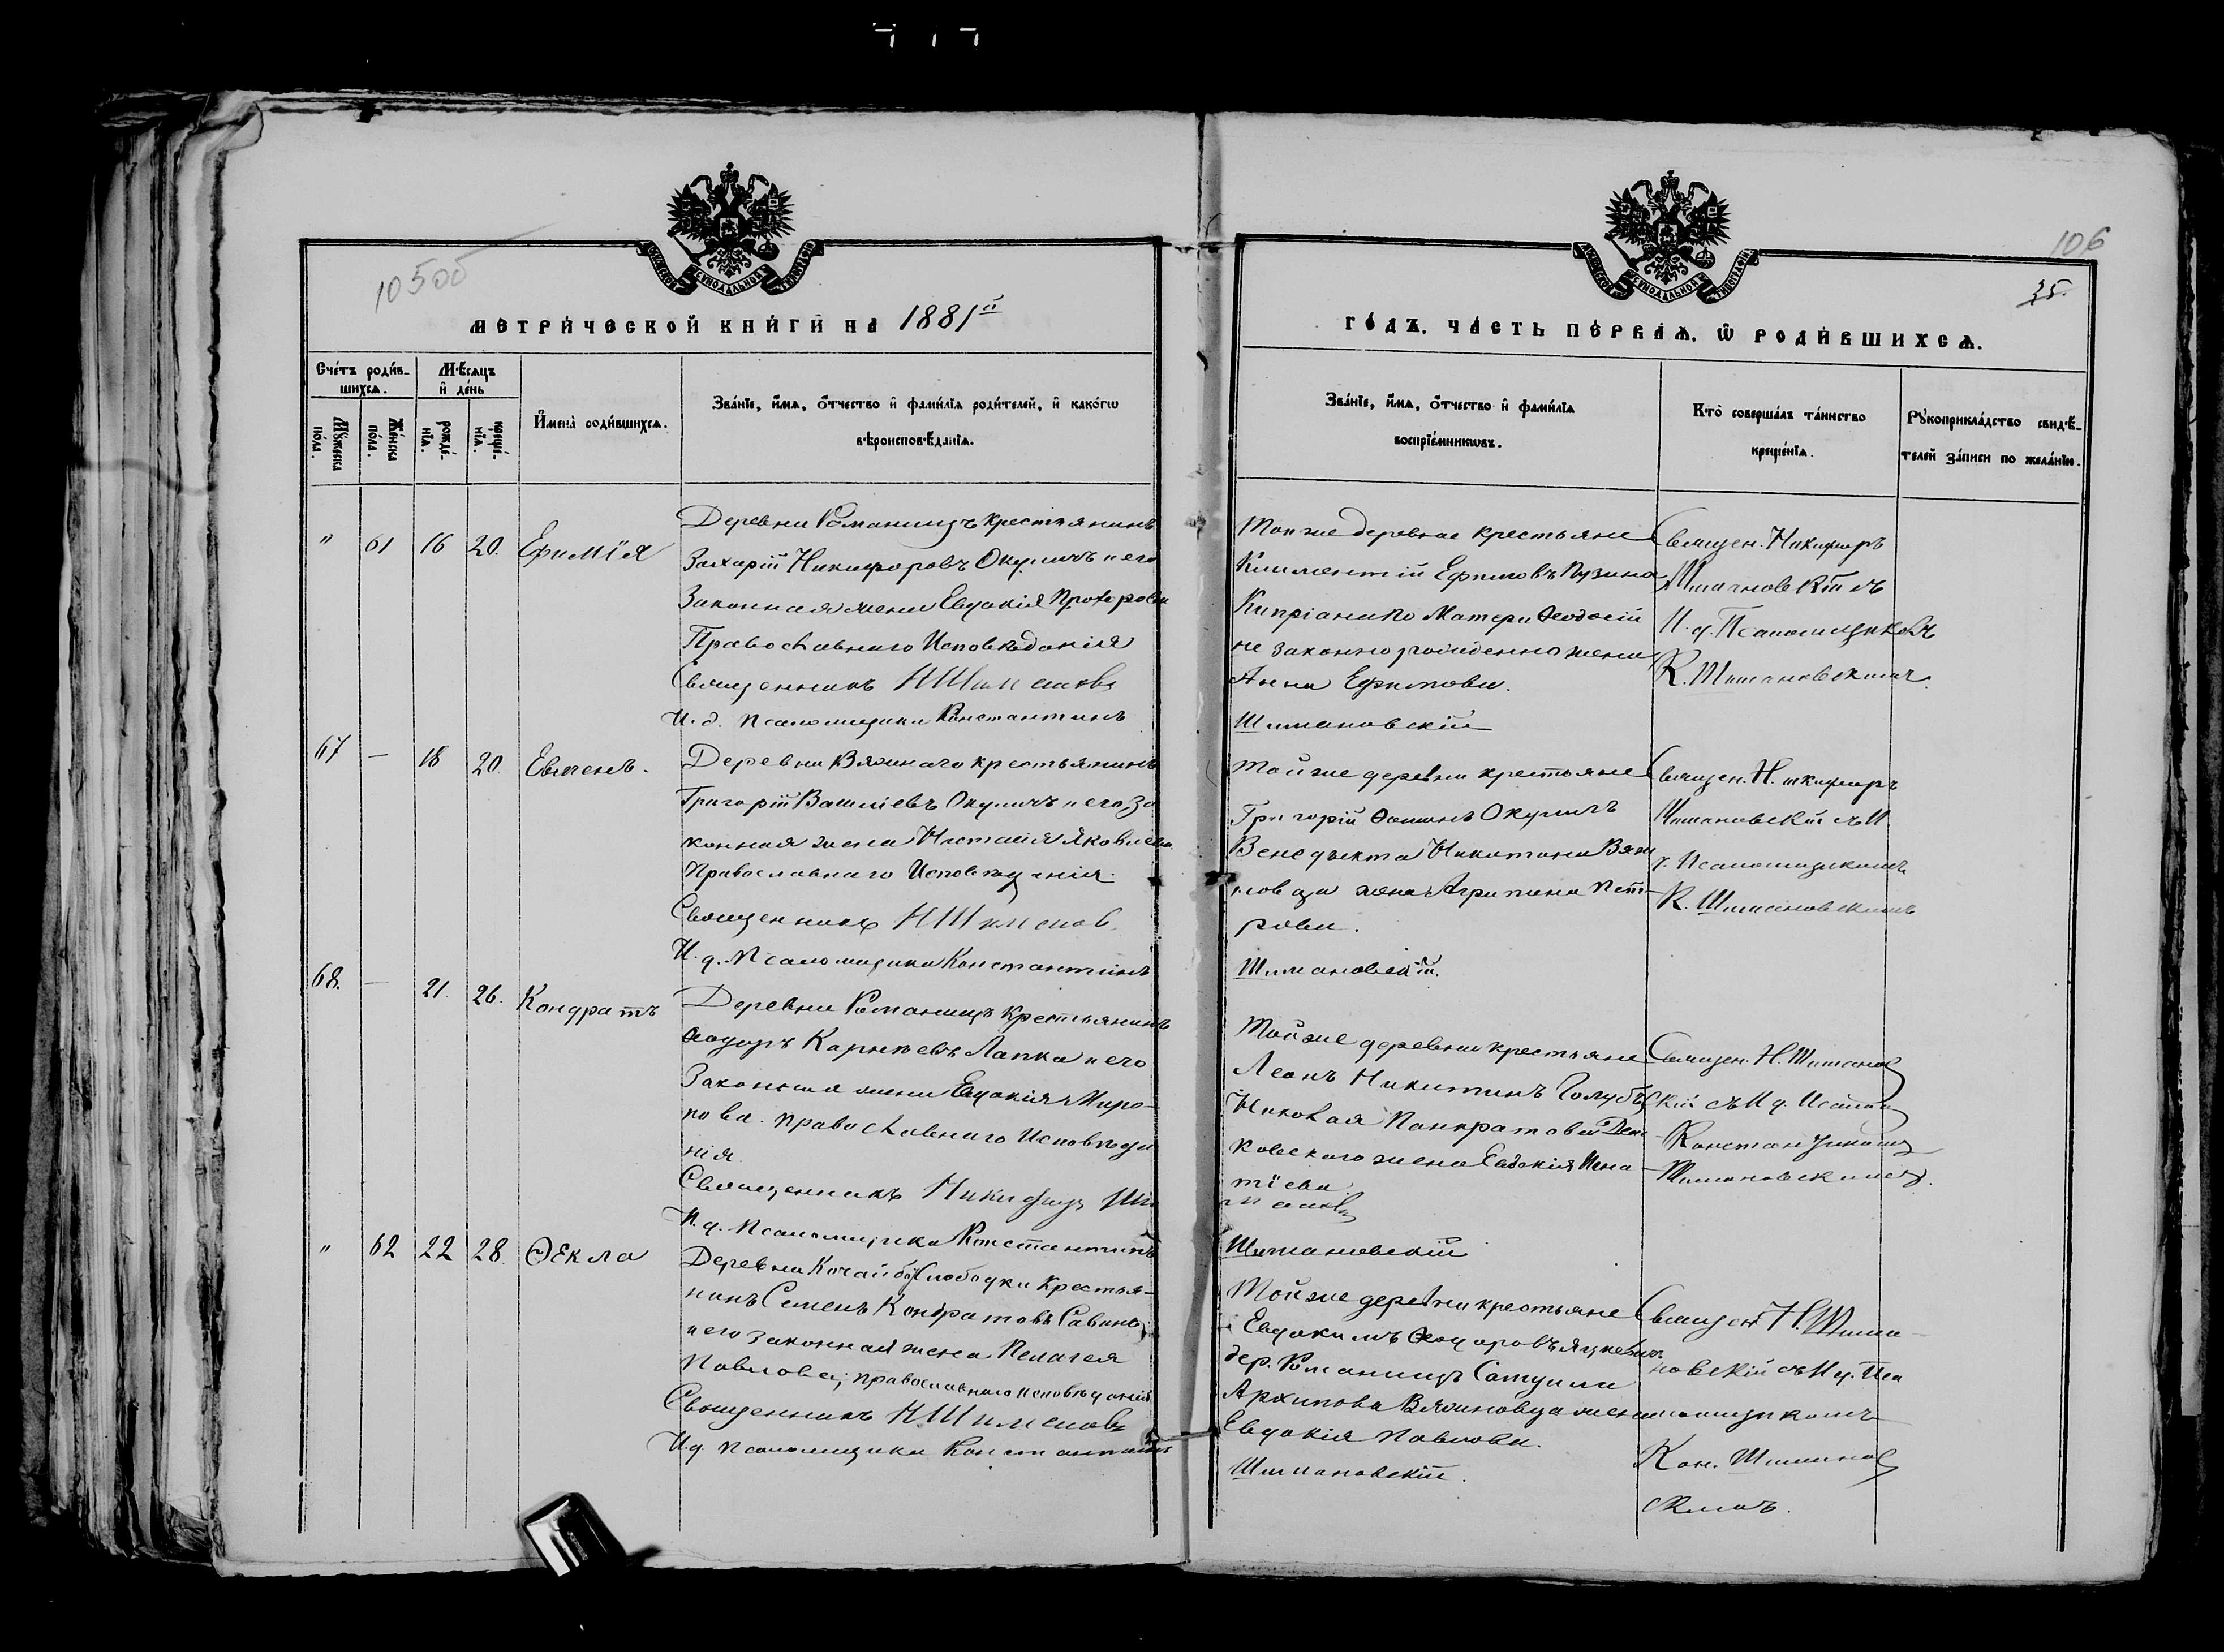 105об
106
35.
МЕТРИ́ЧЕСКОЙ КНИ́ГИ НА 1881й
ГО́ДЪ. ЧА́СТЬ ПЕ́РВАѦ, Ѿ РОДИ́ВШИХСѦ.
Сче́тъ роди́в-
шихсѧ.
Мꙋжеска по́ла.
Же́нска по́ла.
Мѣ́сѧцъ и де́нь
рожде́-
нїѧ.
креще́-
нїѧ.
Имена̀ роди́вшихсѧ.
Зва́нїе, и́мѧ, о́тчество и фами́лїѧ роди́телей, и како́гѡ
вѣроисповѣ́данїѧ.
Зва́нїе, и́мѧ, о́тчество и фами́лїѧ
воспрїе́мникѡвъ.
Кто̀ соверша́лъ та́инство
креще́нїѧ.
Рꙋкоприкла́дство свидѣ́-
телей за́писи по жела́нїю.
" 61 16 20. Ефимїя
Деревни Романищъ крестьянинъ
Захарій Никифоровъ Окуличъ и его
Законная жена Евдокія Прохорова
Православнаго Исповѣданія
Священникъ Н Шиманов
И. д. Псаломщика Константинъ
Той же деревни крестьяне
Климентій Ефимовъ Пузина
Кипріана по Матери Ѳеодосіи
не законно рожденно жена
Анна Ефимова.
Шимановскій
Священ. Никифоръ
Шимановскій съ
И. д. Псаломщикомъ
К. Шимановскимъ
67 — 18 20. Евгенъ.
Деревни Вязинаго крестьянинъ
Григорій Василіевъ Окуличъ и его за
конная жена Настасія Яковлева
Православнаго Исповѣданія.
Священникъ Н Шиманов
И. д. Псаломщика Константинъ
Той же деревни крестьяне
Григорій Ѳоминъ Окуличъ
Венедыкта Никитина Вязы
новца жена Агрипина Пет-
рова.
Шимановскій.
Священ. Никифоръ
Шимановскій съ И
д. Псаломщикомъ
К. Шимановскимъ
68. — 21. 26. Кондратъ
Деревни Романищъ крестьянинъ
Ѳеодоръ Карнѣевъ Лапка и его
Законная жена Евдокія Миро-
нова. Православнаго Исповѣда
нія.
Священникъ Никифоръ Ши
И. д. Псаломщика Константинъ
Той же деревни крестьяне
Леонъ Никитинъ Голубъ
Николая Панкратова
жена Евдокія Игна-
тіева
манов
Шимановскій
Священ. Н. Шиманов
скій съ И. д. Псалом
Константином
Шимановскимъ.
" 62 22 28. Ѳекла
Деревни Слободки крестья-
нинъ Семенъ Кондратовъ Савина
и его законная жена Пелагея
Павлова; православнаго исповѣданія
Священникъ Н Шиманов
И. д. Псаломщика Константинъ
Той же деревни крестьяне
Евдокимъ Ѳеодоровъ Яцкевичъ
дер. Романищъ Самуила
Архипова Вязиновца жена
Евдокія Павлова.
Шимановскій.
Священ. Н. Шима-
новскій съ И. д. Пса
ломщикомъ
Кон. Шиманов
скимъ.